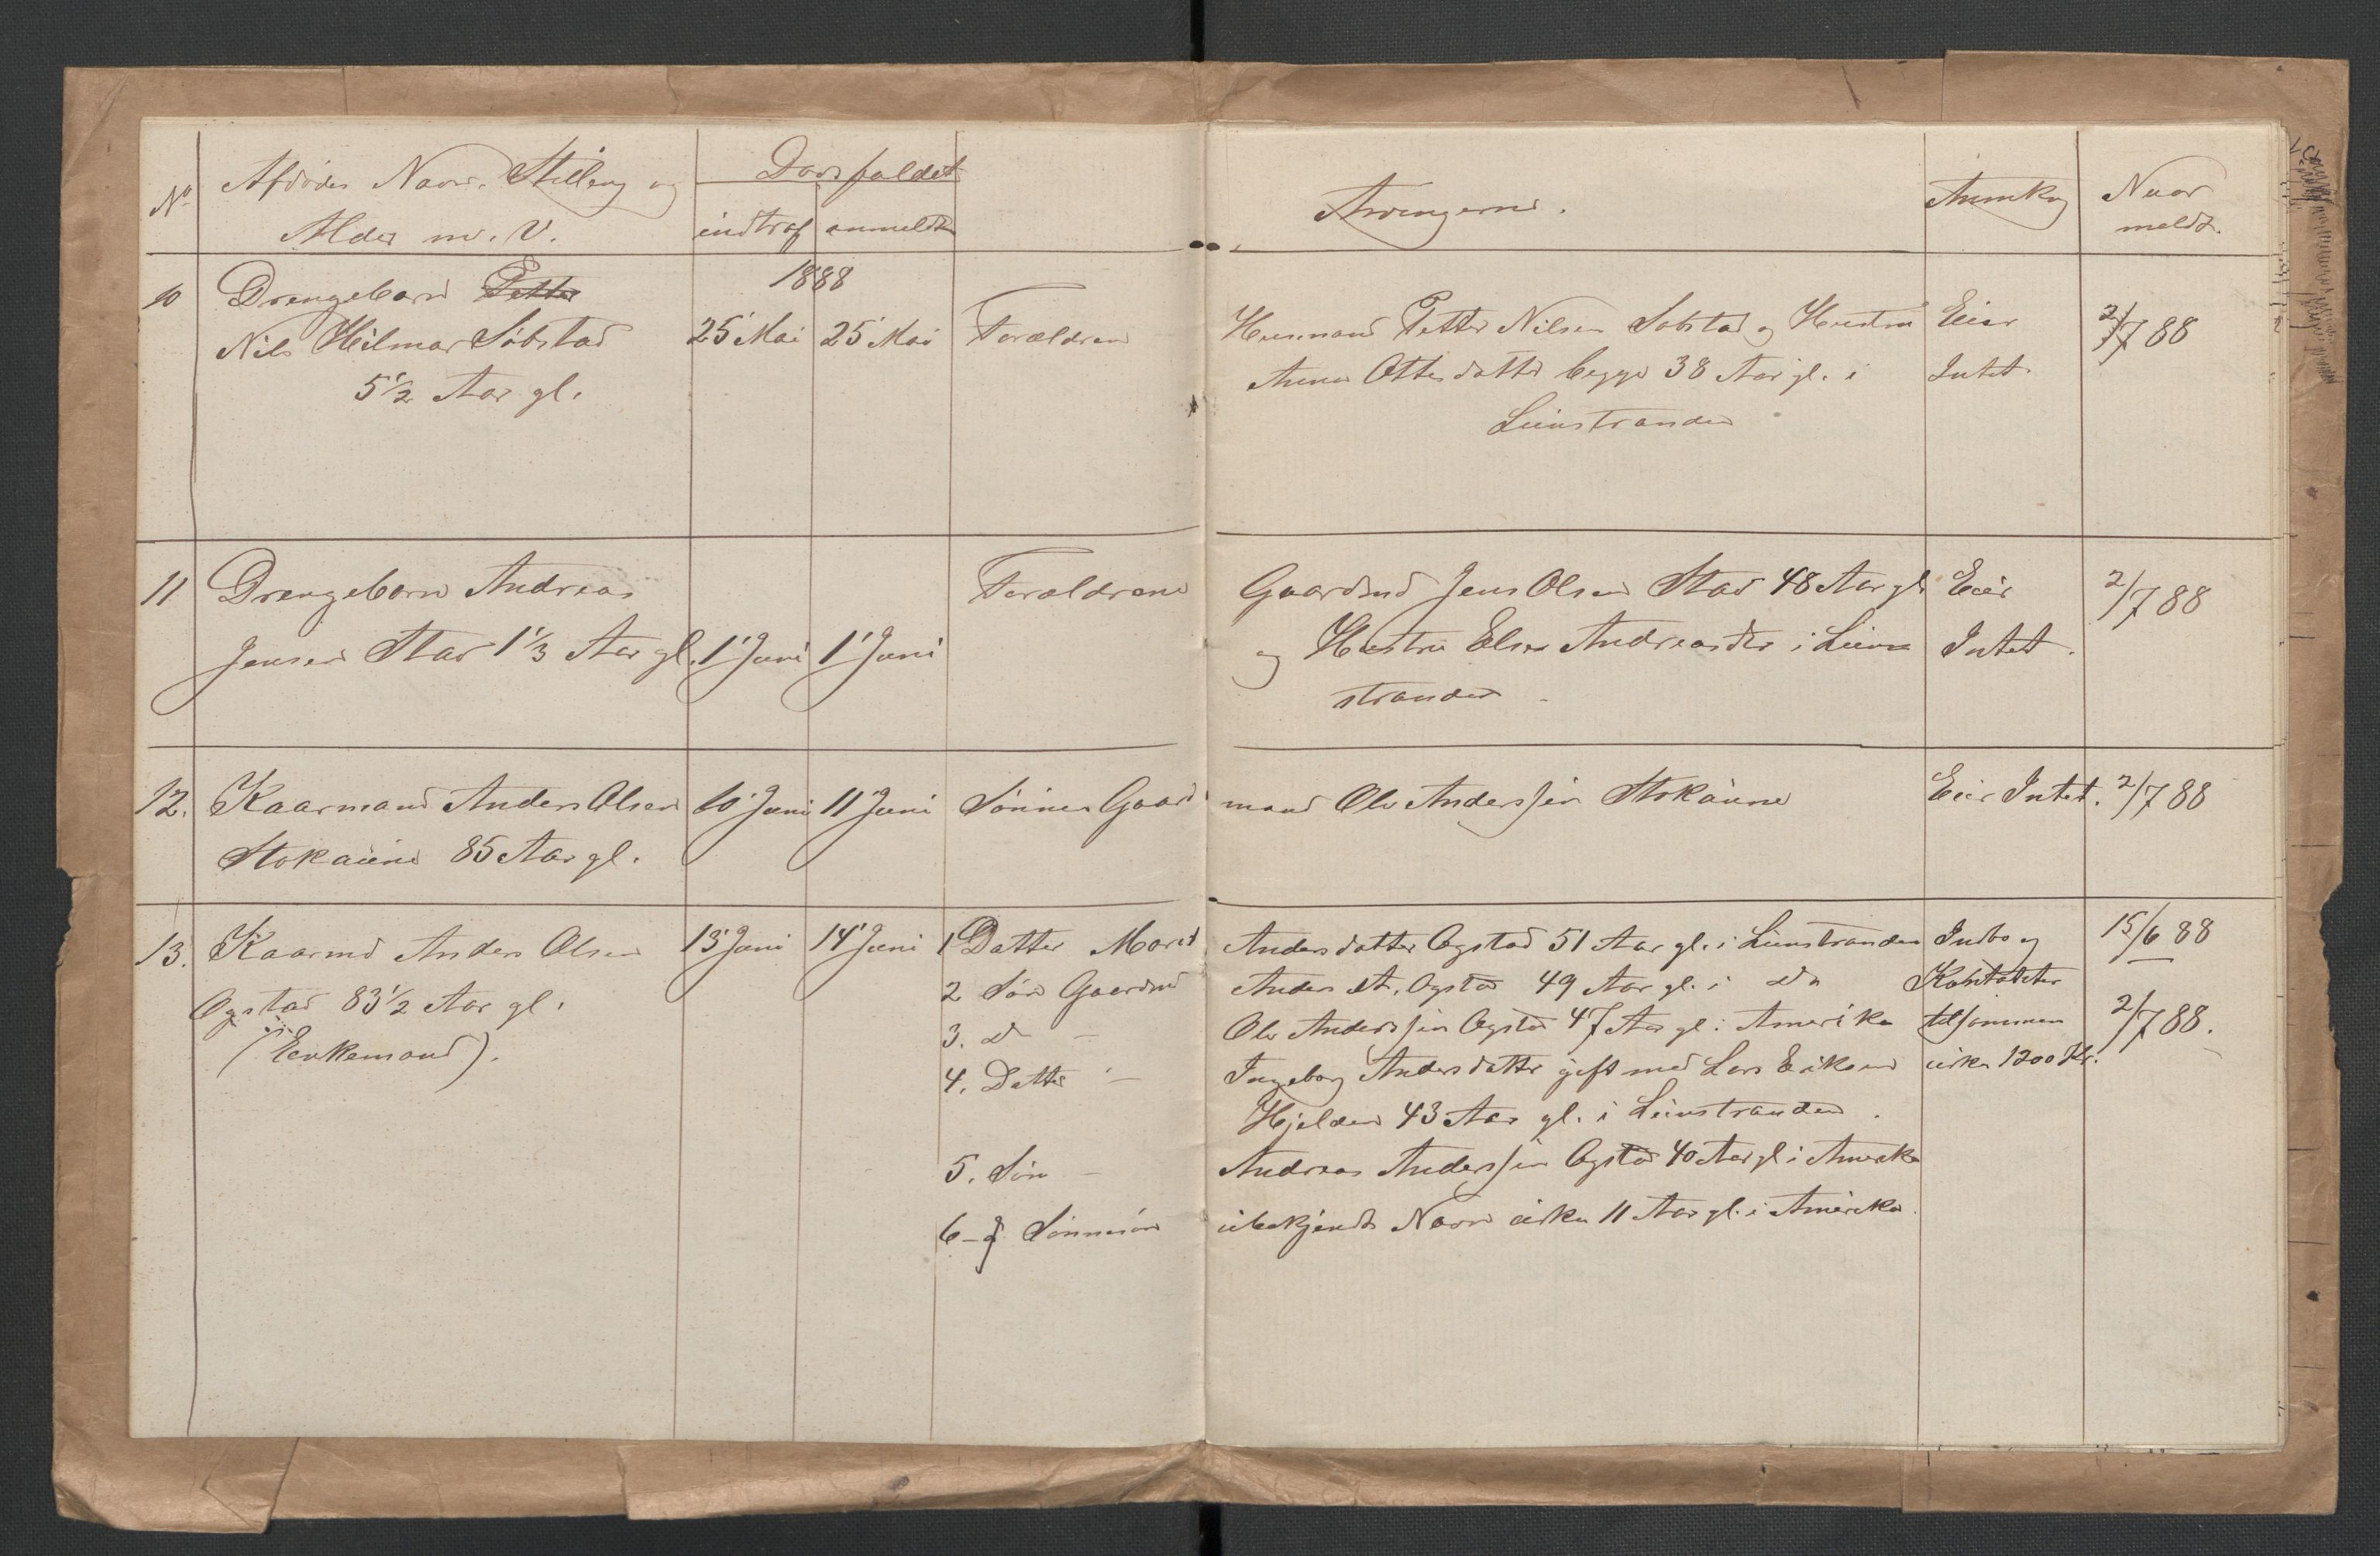 No Afdødes Navn, Stilling og Alder m. V. Dødsfaldet indtraf anmeldt Arvingerne. Anmkg Naar meldt.
1888
10 Drengebarn Petter Husmand Petter Nilsen Søbstad og Hustru Eier 2/7 88
Nils Hilmar Søbstad 25' Mai 25' Mai Forældrene Anna Ottesdatter begge 38 Aar gl. i Intet
5 1/2 Aar gl. Leinstranden
11 Drengebarn Andreas Forældrene Gaardmd Jens Olsen Stav 48 Aar gl Eier 2/7 88
Jensen Stav 1 1/3 Aar gl. 1' Juni 1' Juni og Hustru Else Andreasdtr i Lein Intet.
stranden
12. Kaarmand Anders Olsen 10' Juni 11' Juni Sønnen Gaard mand Ole Anderssen Stokaune Eier Intet. 2/7 88
Stokaune 85 Aar gl.
13. Kaarmd Anders Olsen 13' Juni 14' Juni 1 Datter Marit Andersdatter Ogstad 51 Aar gl. i Leinstranden Indbo og 15/6 88
Ogstad 83 1/2 Aar gl. 2 Søn Gaardmd Anders A. Ogstad 49 Aar gl. i do
(Enkemand). 3. do – Ole Anderssen Ogstad 47 Aar gl. i Amerika tilsammen 2/7 88.
4. Datter – Ingeborg Andersdatter gift med Lars Eriksen cirka 1200 Kr.
Hjelden 43 Aar gl. i Leinstranden.
5. Søn – Andreas Anderssen Ogstad 40 Aar gl i Amerika
6 – Sønnesøn ubekjendt Navn cirka 11 Aar gl. i Amerika.